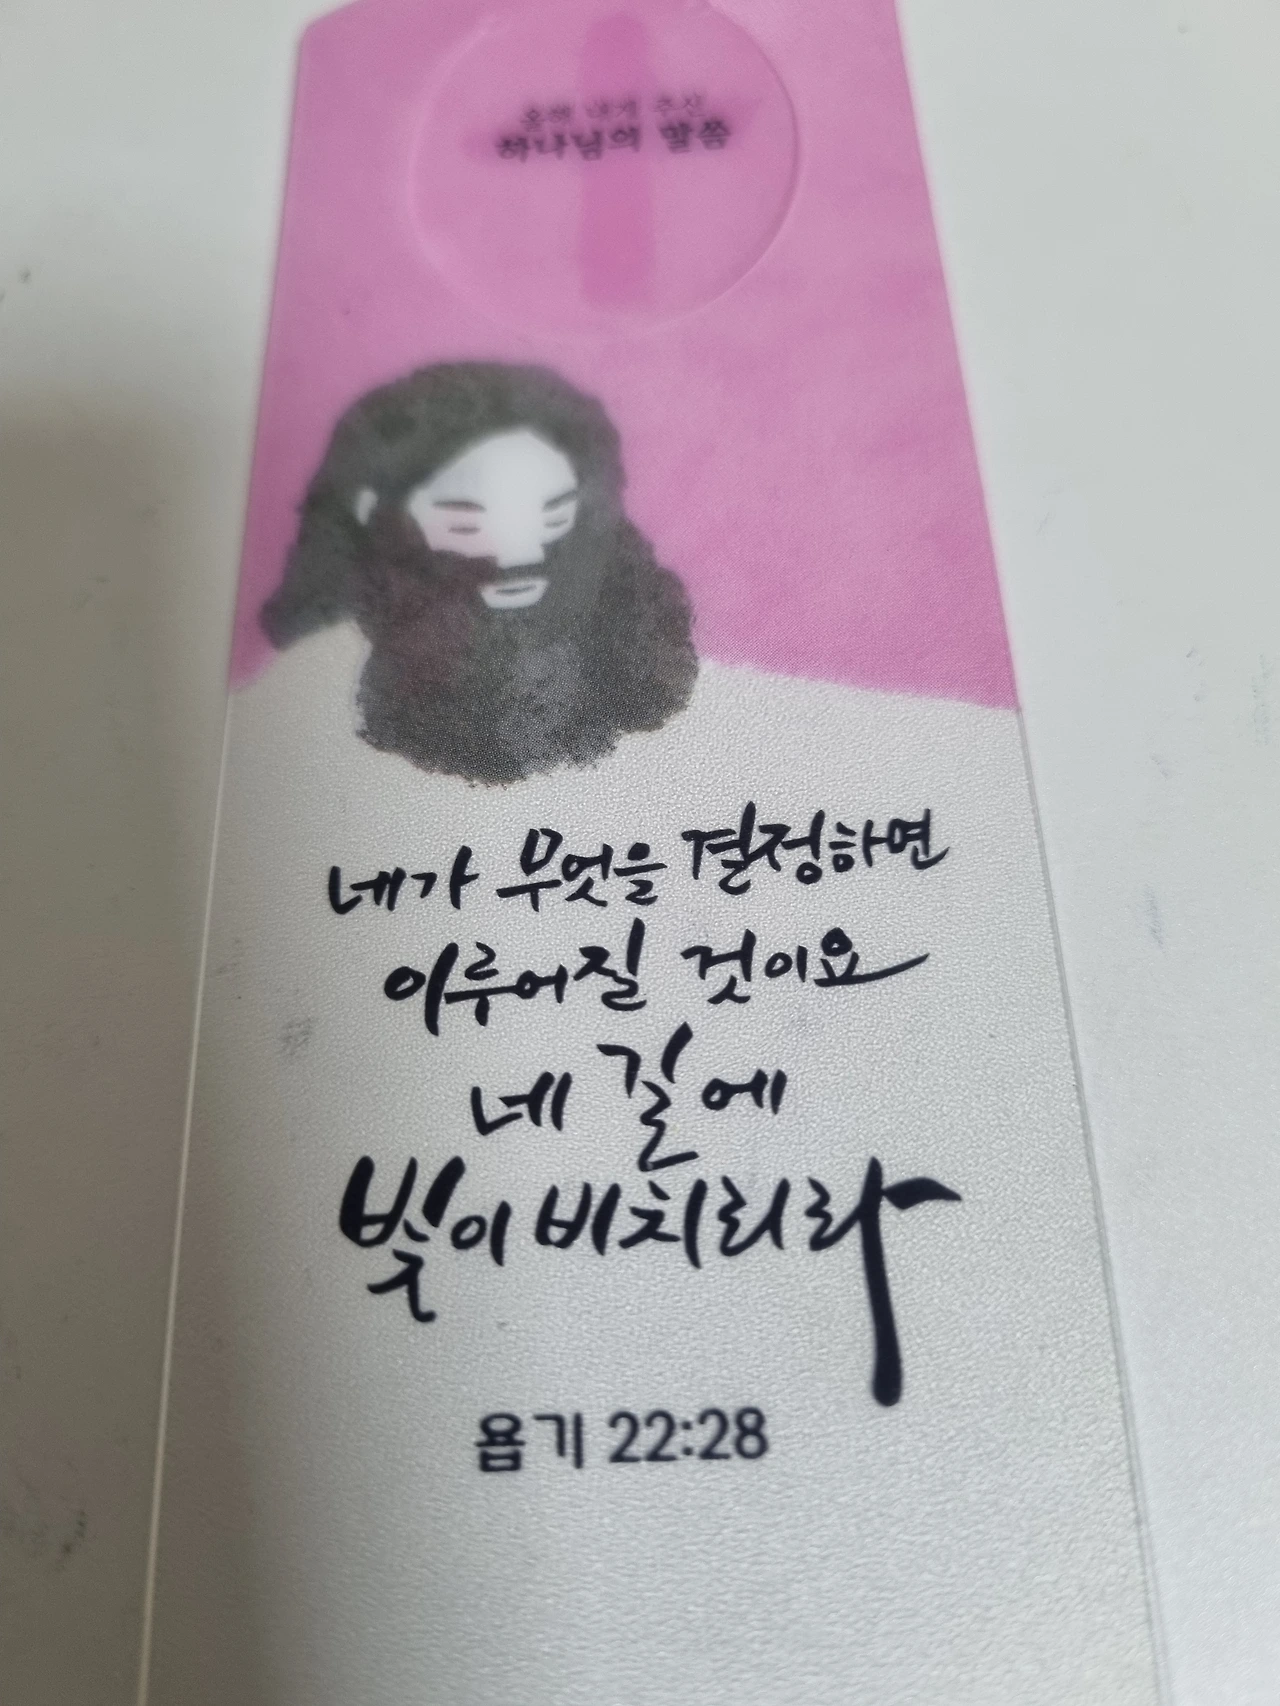 올해 내게 주신
하나님의 말씀
네가 무엇을 결정하면
이루어질 것이요
네 길에
빛이 비치리라
욥기 22:28